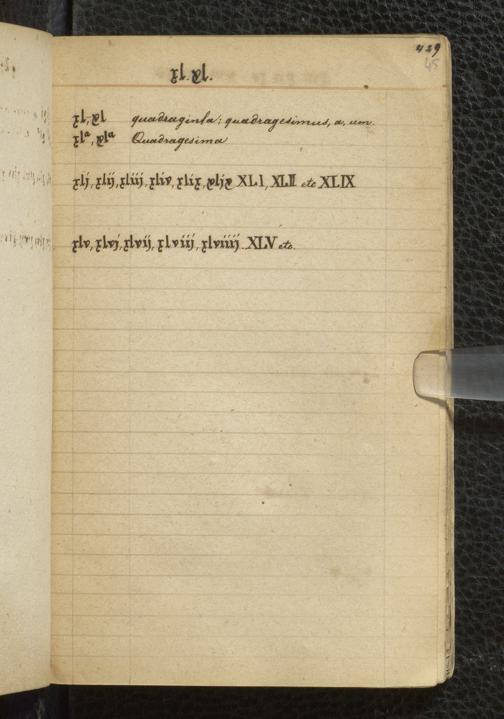 429
45
xl. xl.
xl, xl quadraginta; quadragesimus, a, um.
xlᵃ, xlᵃ Quadragesima
xlj, xlij, xliij, xliv, xlix, xljx XLI, XLII etc XLIX
xlv, xlvj, xlvij, xlviij, xlviiij. XLV etc.